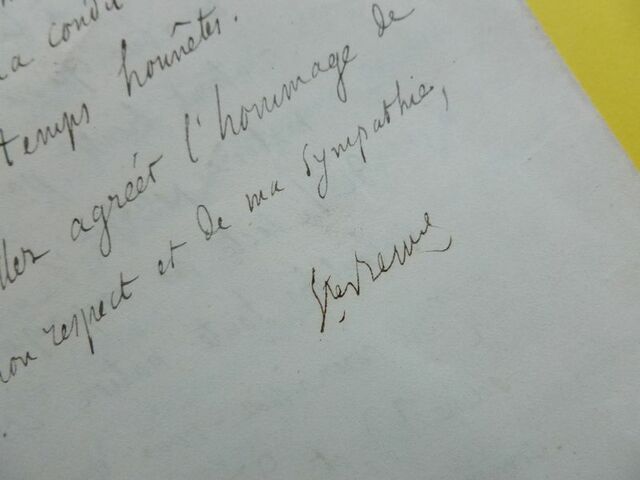 a condui
temps hounêtes.
llez agréer l'hommage de
mon respect et de ma sympathie,